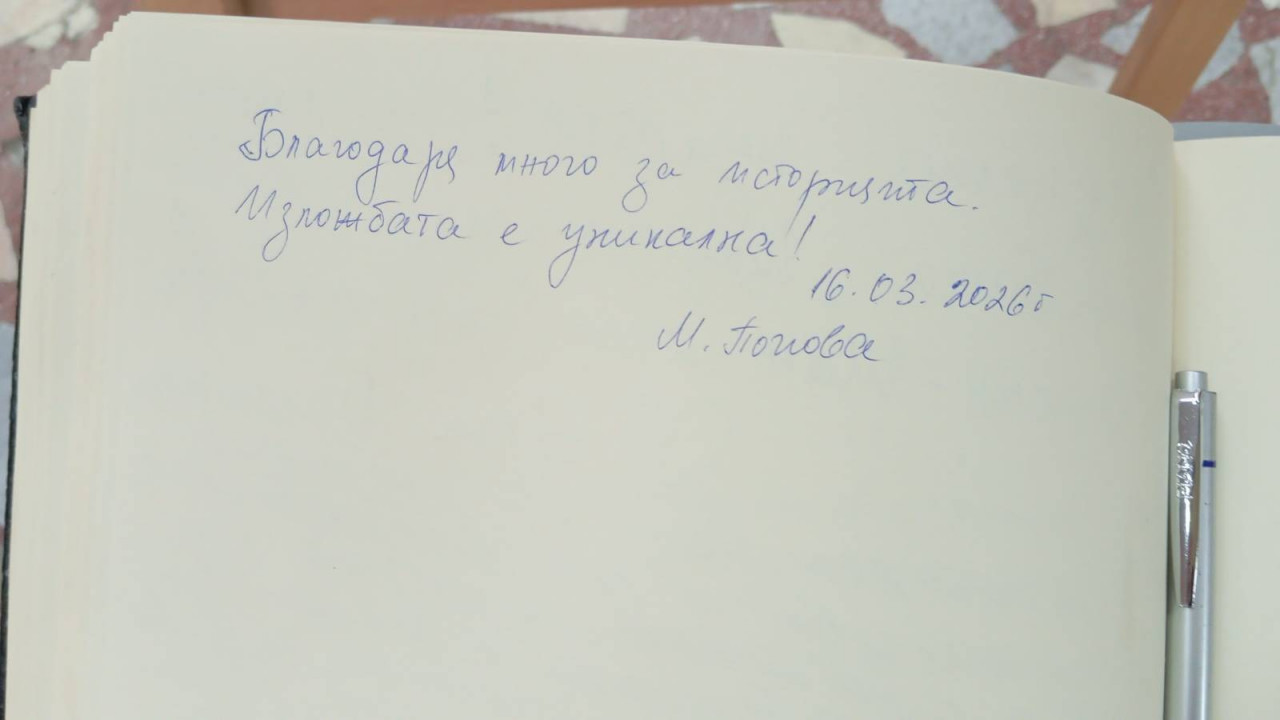 Благодаря много за историята.
Изложбата е уникална!
16.03.2026г
М. Попова